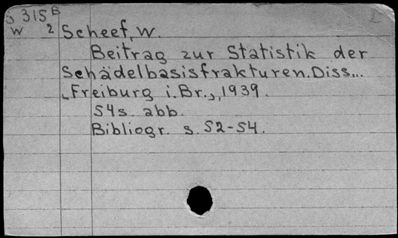 3 315 B
W 2 Scheef, W.
Beitrag zur Statistik der
Schädelbasisfrakturen. Diss...
Freiburg i. Br., 1939.
54s. abb.
Bibliogr. s. 52-54.